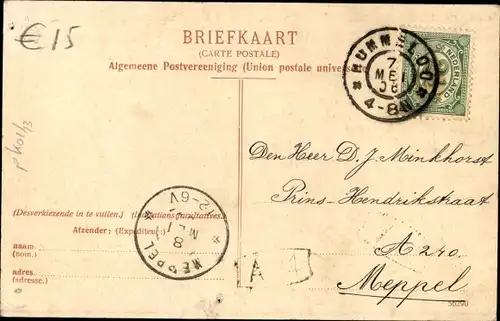 €15
BRIEFKAART
(CARTE POSTALE)
Algemeene Postvereeniging (Union postale univers
HUMMELOO
7
MEI
08
4-8N
NEDERLAND
pk01/3
Den Heer D. J. Minkhorst
Prins-Hendrikstraat
A 240.
Meppel.
(Desverkiezende in te vullen.)
Afzender: (Expediteur:)
naam:
(nom.)
adres:
(adresse.)
MEPPEL
8
12-6V
A 1
56290